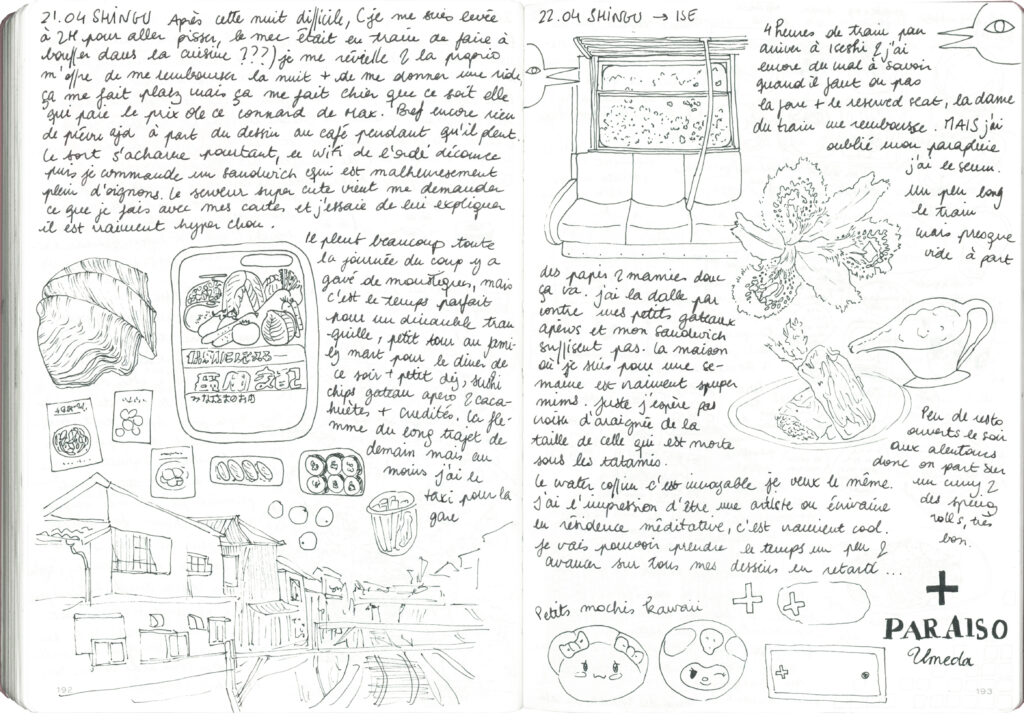 21.04 SHINGU Après cette nuit difficile, (je me suis levée
à 2H pour aller pisser, le mec était en train de faire à
bouffer dans la cuisine ???) je me réveille & la proprio
m'offre de me rembourser la nuit + de me donner une ride,
ça me fait plaiz mais ça me fait chier que ce soit elle
qui paie le prix de ce connard de Max. Bref encore rien
de prévu ajd à part du dessin au café pendant qu'il pleut.
Le sort s'acharne pourtant, le wifi de l'ordi déconne
puis je commande un sandwich qui est malheureusement
plein d'oignons. Le serveur super cute vient me demander
ce que je fais avec mes cartes et j'essaie de lui expliquer
il est vraiment hyper chou.
Il pleut beaucoup toute
la journée du coup y a
gavé de moustiques, mais
c'est le temps parfait
pour un dimanche tran
quille, petit tour au fami
ly mart pour le diner de
ce soir + petit dej, sushi
chips gateau apéro & caca
huètes + crudités. La fle-
mme du long trajet de
demain mais au
moins j'ai le
taxi pour la
gare
192
22.04 SHINGU → ISE
4 heures de train pour
arriver à Iseshi & j'ai
encore du mal à savoir
quand il faut ou pas
la fare + le reserved seat, la dame
du train me rembourse. MAIS j'ai
oublié mon parapluie
j'ai le seum.
Un peu long
le train
mais presque
vide à part
des papis & mamies donc
ça va. J'ai la dalle par
contre mes petits gateaux
apéros et mon sandwich
suffisent pas. La maison
où je suis pour une se-
maine est vraiment super
mims. Juste j'espère pas
croiser d'araignée de la
taille de celle qui est morte
sous les tatamis.
Le water coffin c'est incroyable je veux le même.
J'ai l'impression d'être une artiste ou écrivaine
en résidence méditative, c'est vraiment cool.
Je vais pouvoir prendre le temps un peu &
avancer sur tous mes dessins en retard ...
Peu de resto
ouverts le soir
aux alentours
donc on part sur
un curry &
des spring
rolls, très
bon.
Petits mochis kawaii
+
PARAISO
Umeda
193